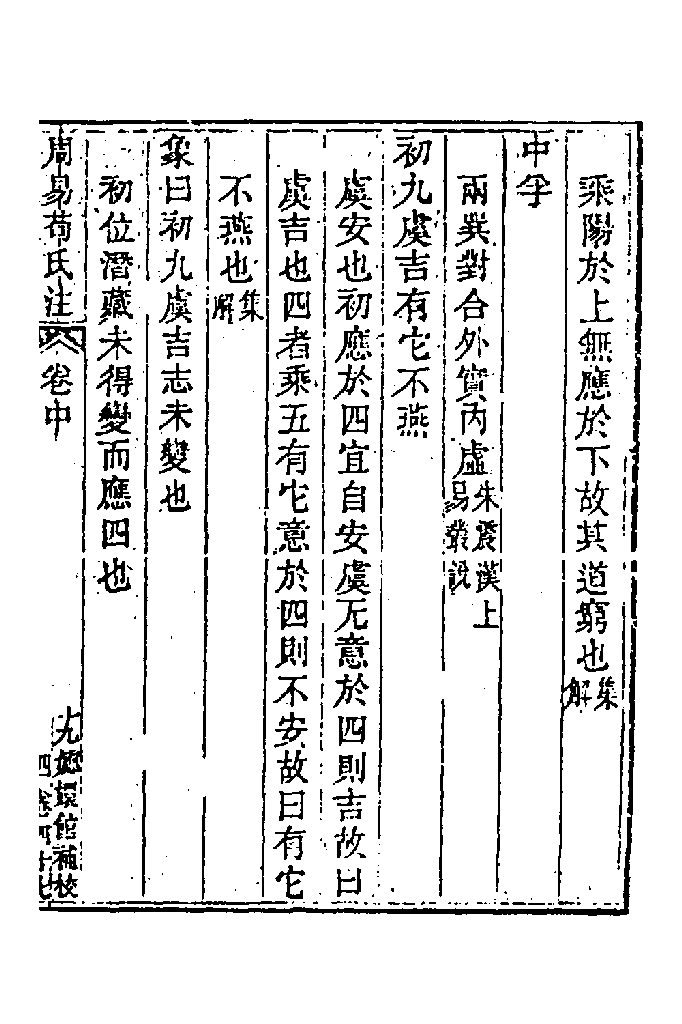 乘陽於上無應於下故其道窮也集解
中孚
兩巽對合外實內虛朱震漢上易叢說
初九虞吉有它不燕
虞安也初應於四宜自安虞无意於四則吉故曰
虞吉也四者乘五有它意於四則不安故曰有它
不燕也集解
象曰初九虞吉志未變也
初位潛藏未得變而應四也
周易荀氏注 卷中
九嫏嬛館補校